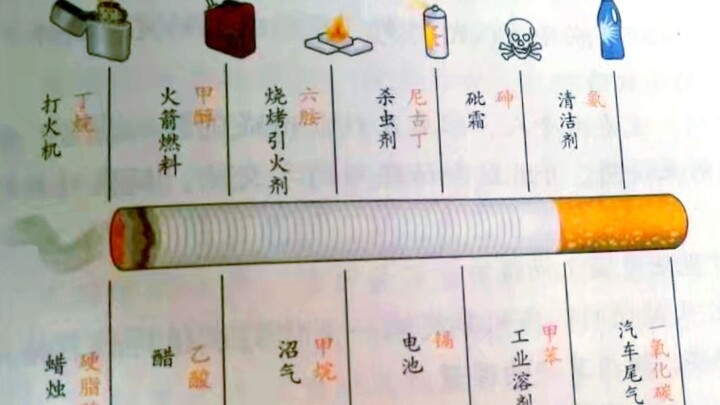 打火机
丁烷
火箭燃料
甲醇
烧烤引火剂
六胺
杀虫剂
尼古丁
砒霜
砷
清洁剂
氨
蜡烛
硬脂
醋
乙酸
沼气
甲烷
电池
镉
工业溶剂
甲苯
汽车尾气
一氧化碳